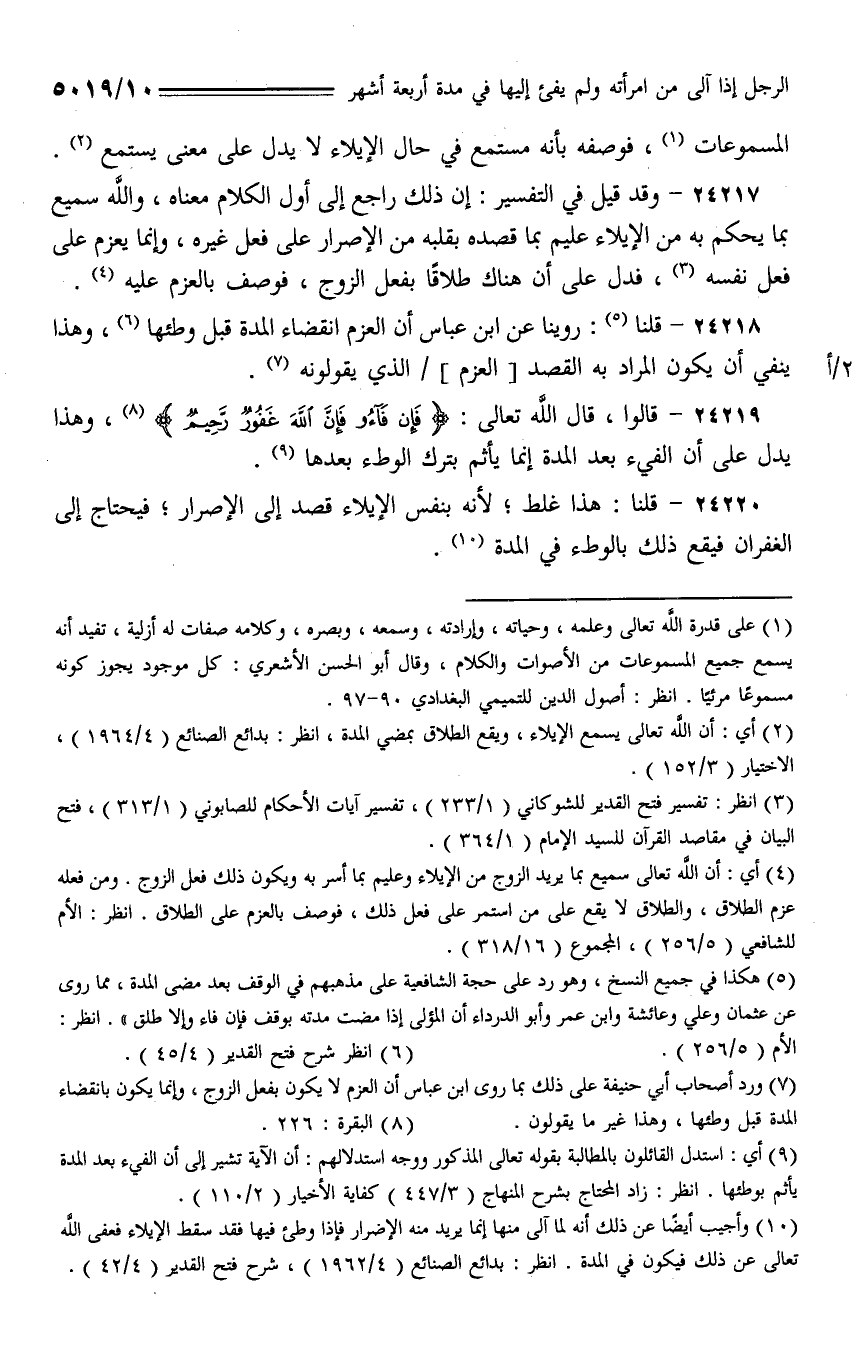 الرجل إذا آلى من امرأته ولم يفئ إليها في مدة أربعة أشهر ٥٠١٩/١٠
المسموعات (١) ، فوصفه بأنه مستمع في حال الإيلاء لا يدل على معنى يستمع (٢) .
٢٤٢١٧ – وقد قيل في التفسير : إن ذلك راجع إلى أول الكلام معناه ، واللَّه سميع
بما يحكم به من الإيلاء عليم بما قصده بقلبه من الإصرار على فعل غيره ، وإنما يعزم على
فعل نفسه (٣) ، فدل على أن هناك طلاقًا بفعل الزوج ، فوصف بالعزم عليه (٤) .
٢٤٢١٨ – قلنا (٥) : روينا عن ابن عباس أن العزم انقضاء المدة قبل وطئها (٦) ، وهذا
ينفي أن يكون المراد به القصد [ العزم ] / الذي يقولونه (٧) . ٢/أ
٢٤٢١٩ – قالوا ، قال اللَّه تعالى : ﴿ فَإِن فَآءُو فَإِنَّ ٱللَّهَ غَفُورٌ رَّحِيمٌ ﴾ (٨) ، وهذا
يدل على أن الفيء بعد المدة إنما يأثم بترك الوطء بعدها (٩) .
٢٤٢٢٠ – قلنا : هذا غلط ؛ لأنه بنفس الإيلاء قصد إلى الإصرار ؛ فيحتاج إلى
الغفران فيقع ذلك بالوطء في المدة (١٠) .
(١) على قدرة اللَّه تعالى وعلمه ، وحياته ، وإرادته ، وسمعه ، وبصره ، وكلامه صفات له أزلية ، تفيد أنه
يسمع جميع المسموعات من الأصوات والكلام ، وقال أبو الحسن الأشعري : كل موجود يجوز كونه
مسموعًا مرئيًا . انظر : أصول الدين للتميمي البغدادي ٩٠-٩٧ .
(٢) أي : أن اللَّه تعالى يسمع الإيلاء ، ويقع الطلاق بمضي المدة ، انظر : بدائع الصنائع ( ١٩٦٤/٤ ) ،
الاختيار ( ١٥٢/٣ ) .
(٣) انظر : تفسير فتح القدير للشوكاني ( ٢٣٣/١ ) ، تفسير آيات الأحكام للصابوني ( ٣١٣/١ ) ، فتح
البيان في مقاصد القرآن للسيد الإمام ( ٣٦٤/١ ) .
(٤) أي : أن اللَّه تعالى سميع بما يريد الزوج من الإيلاء وعليم بما أسر به ويكون ذلك فعل الزوج . ومن فعله
عزم الطلاق ، والطلاق لا يقع على من استمر على فعل ذلك ، فوصف بالعزم على الطلاق . انظر : الأم
للشافعي ( ٢٥٦/٥ ) ، المجموع ( ٣١٨/١٦ ) .
(٥) هكذا في جميع النسخ ، وهو رد على حجة الشافعية على مذهبهم في الوقف بعد مضى المدة ، مما روى
عن عثمان وعلي وعائشة وابن عمر وأبو الدرداء أن المؤلى إذا مضت مدته يوقف فإن فاء وإلا طلق » . انظر :
الأم ( ٢٥٦/٥ ) . (٦) انظر شرح فتح القدير ( ٤٥/٤ ) .
(٧) ورد أصحاب أبي حنيفة على ذلك بما روى ابن عباس أن العزم لا يكون بفعل الزوج ، وإنما يكون بانقضاء
المدة قبل وطئها ، وهذا غير ما يقولون . (٨) البقرة : ٢٢٦ .
(٩) أي : استدل القائلون بالمطالبة بقوله تعالى المذكور ووجه استدلالهم : أن الآية تشير إلى أن الفيء بعد المدة
يأثم بوطئها . انظر : زاد المحتاج بشرح المنهاج ( ٤٤٧/٣ ) كفاية الأخيار ( ١١٠/٢ ) .
(١٠) وأجيب أيضًا عن ذلك أنه لما آلى منها إنما يريد منه الإضرار فإذا وطئ فيها فقد سقط الإيلاء فعفى اللَّه
تعالى عن ذلك فيكون في المدة . انظر : بدائع الصنائع ( ١٩٦٢/٤ ) ، شرح فتح القدير ( ٤٢/٤ ) .